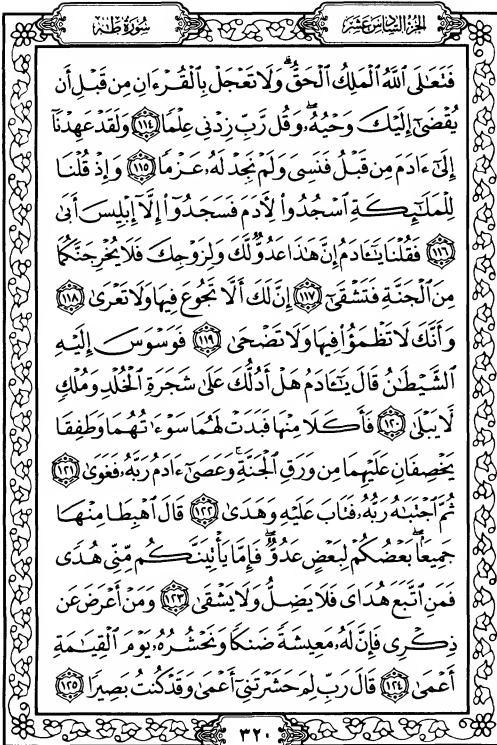 الجزء السادس عشر
سورة طه
فَتَعَٰلَى ٱللَّهُ ٱلْمَلِكُ ٱلْحَقُّ ۗ وَلَا تَعْجَلْ بِٱلْقُرْءَانِ مِن قَبْلِ أَن
يُقْضَىٰٓ إِلَيْكَ وَحْيُهُۥ ۖ وَقُل رَّبِّ زِدْنِى عِلْمًا ١١٤ وَلَقَدْ عَهِدْنَآ
إِلَىٰٓ ءَادَمَ مِن قَبْلُ فَنَسِىَ وَلَمْ نَجِدْ لَهُۥ عَزْمًا ١١٥ وَإِذْ قُلْنَا
لِلْمَلَٰٓئِكَةِ ٱسْجُدُوا۟ لِءَادَمَ فَسَجَدُوٓا۟ إِلَّآ إِبْلِيسَ أَبَىٰ
١١٦ فَقُلْنَا يَٰٓـَٔادَمُ إِنَّ هَٰذَا عَدُوٌّ لَّكَ وَلِزَوْجِكَ فَلَا يُخْرِجَنَّكُمَا
مِنَ ٱلْجَنَّةِ فَتَشْقَىٰٓ ١١٧ إِنَّ لَكَ أَلَّا تَجُوعَ فِيهَا وَلَا تَعْرَىٰ ١١٨
وَأَنَّكَ لَا تَظْمَؤُا۟ فِيهَا وَلَا تَضْحَىٰ ١١٩ فَوَسْوَسَ إِلَيْهِ
ٱلشَّيْطَٰنُ قَالَ يَٰٓـَٔادَمُ هَلْ أَدُلُّكَ عَلَىٰ شَجَرَةِ ٱلْخُلْدِ وَمُلْكٍ
لَّا يَبْلَىٰ ١٢٠ فَأَكَلَا مِنْهَا فَبَدَتْ لَهُمَا سَوْءَٰتُهُمَا وَطَفِقَا
يَخْصِفَانِ عَلَيْهِمَا مِن وَرَقِ ٱلْجَنَّةِ ۚ وَعَصَىٰٓ ءَادَمُ رَبَّهُۥ فَغَوَىٰ ١٢١
ثُمَّ ٱجْتَبَٰهُ رَبُّهُۥ فَتَابَ عَلَيْهِ وَهَدَىٰ ١٢٢ قَالَ ٱهْبِطَا مِنْهَا
جَمِيعًۢا ۖ بَعْضُكُمْ لِبَعْضٍ عَدُوٌّ ۖ فَإِمَّا يَأْتِيَنَّكُم مِّنِّى هُدًى
فَمَنِ ٱتَّبَعَ هُدَاىَ فَلَا يَضِلُّ وَلَا يَشْقَىٰ ١٢٣ وَمَنْ أَعْرَضَ عَن
ذِكْرِى فَإِنَّ لَهُۥ مَعِيشَةً ضَنكًا وَنَحْشُرُهُۥ يَوْمَ ٱلْقِيَٰمَةِ
أَعْمَىٰ ١٢٤ قَالَ رَبِّ لِمَ حَشَرْتَنِىٓ أَعْمَىٰ وَقَدْ كُنتُ بَصِيرًا ١٢٥
٣٢٠